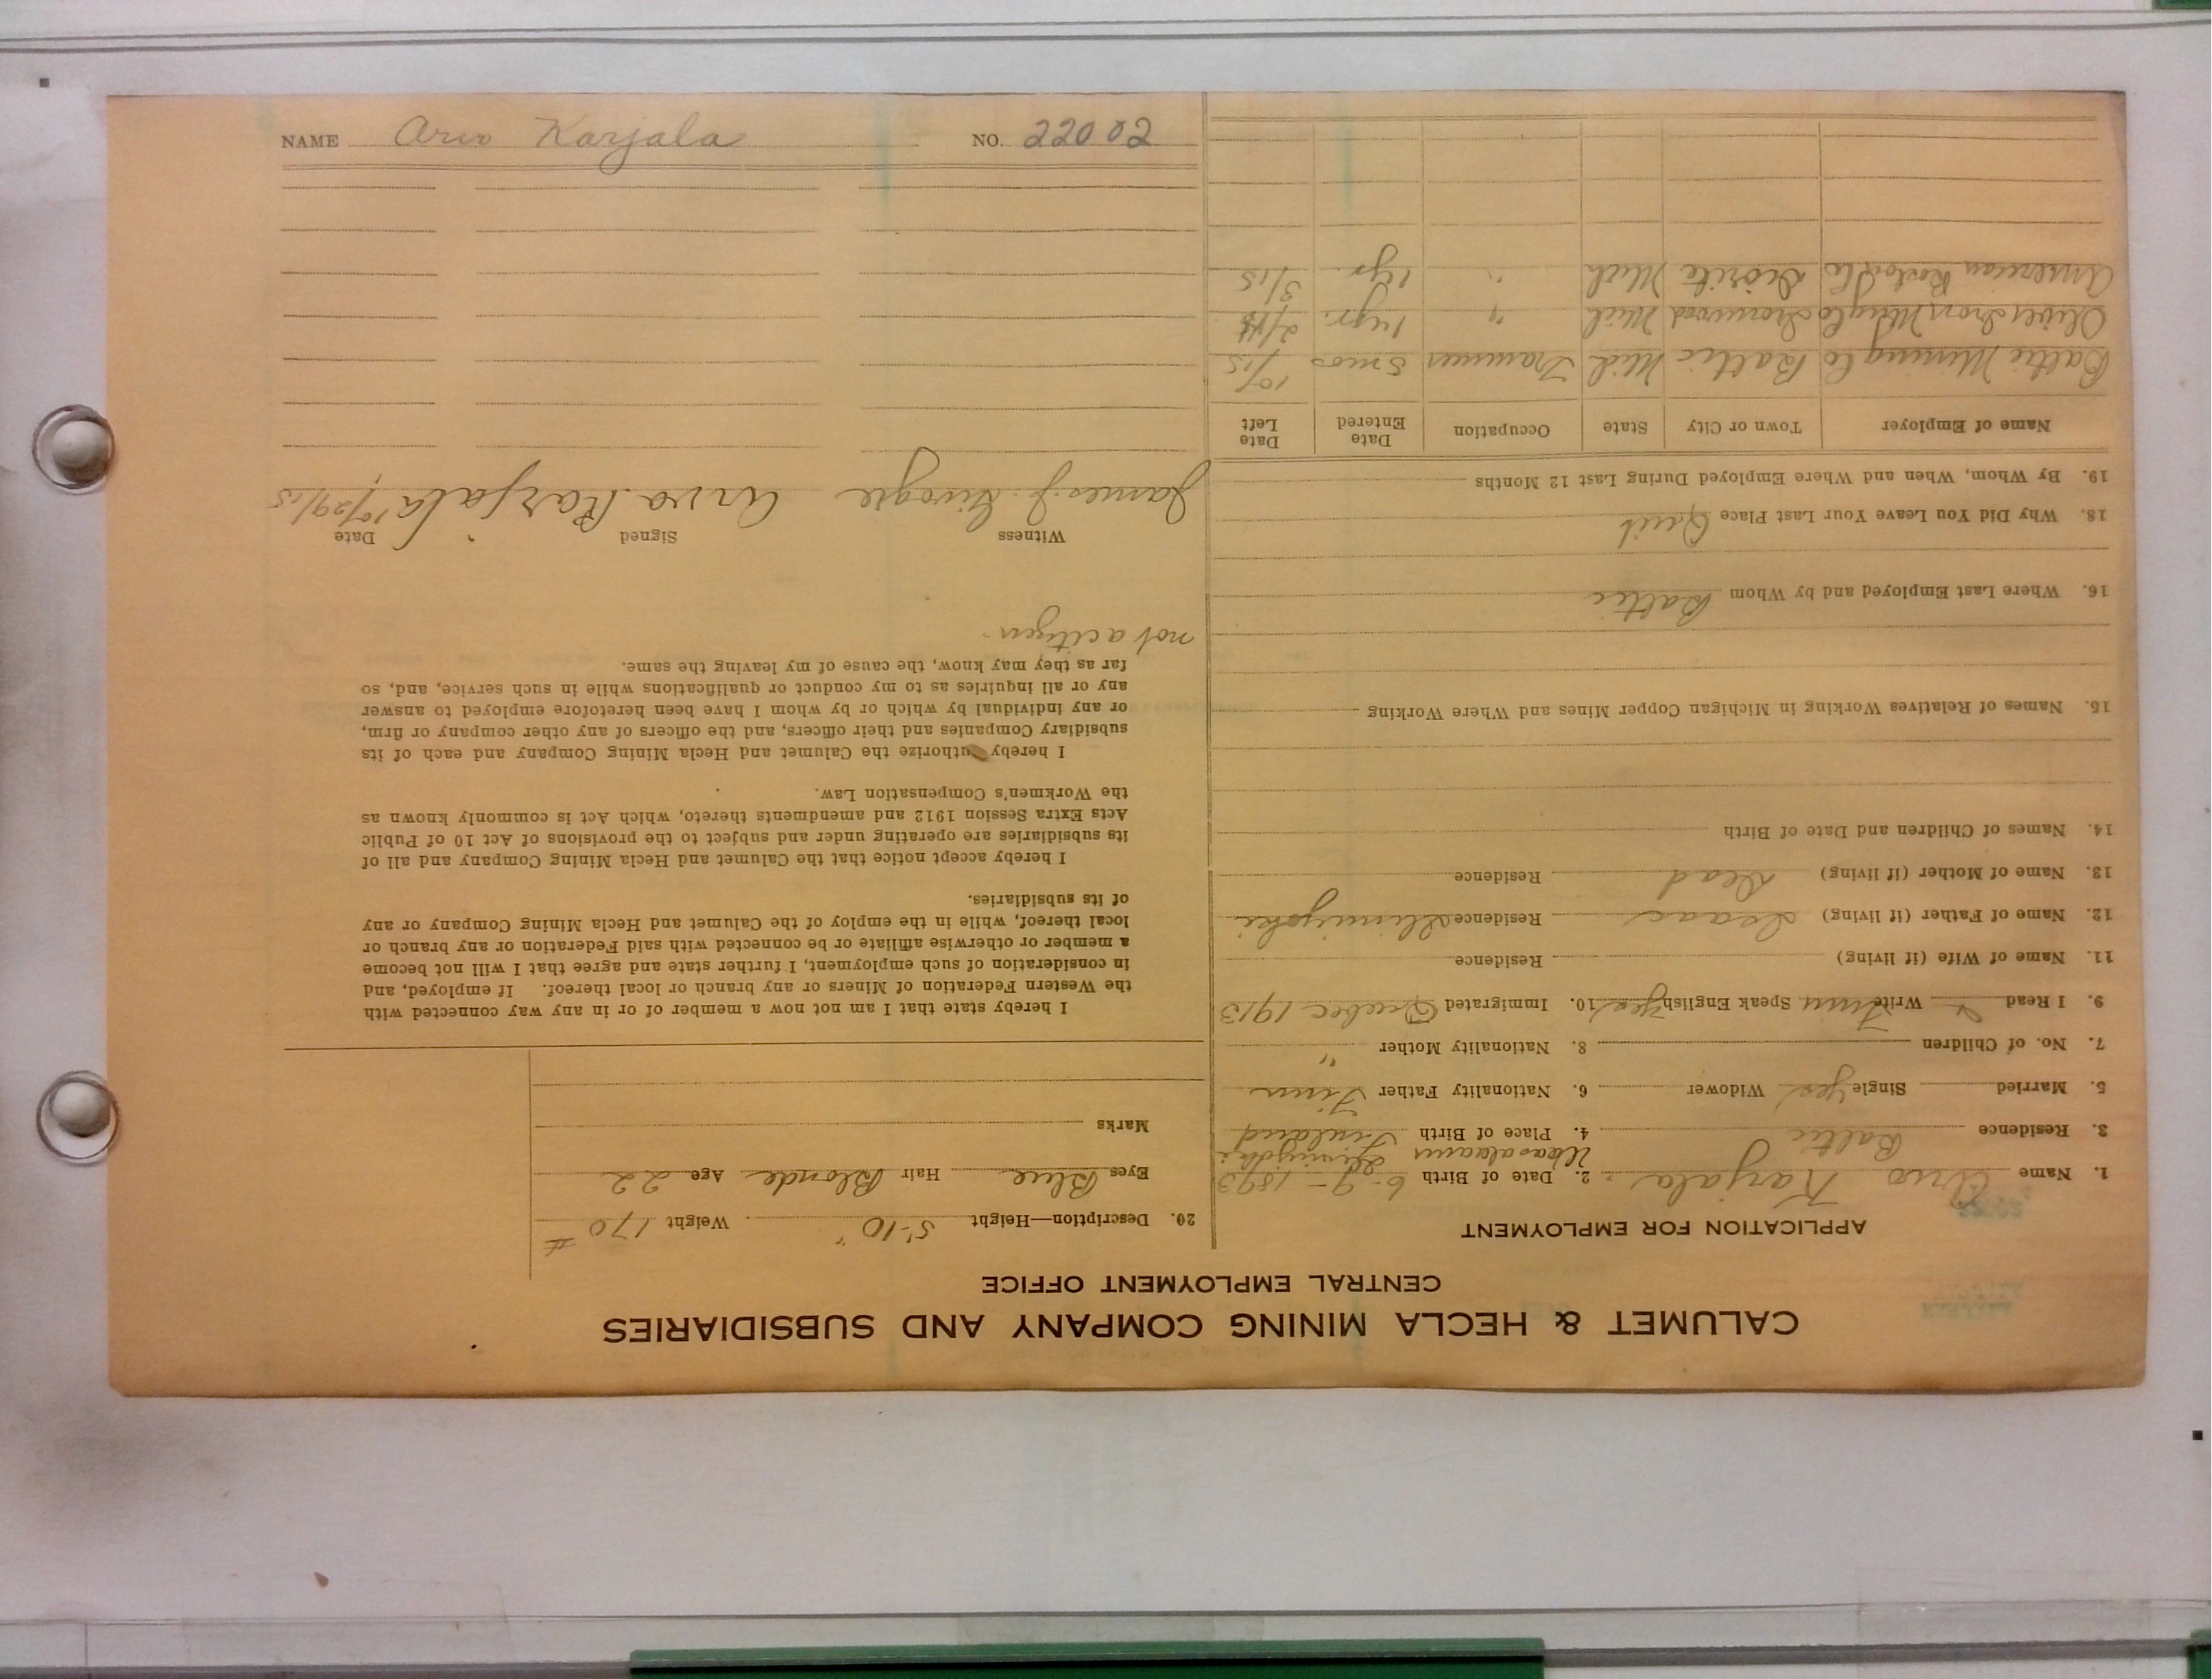 NAME Arvo Karjala NO. 22002
CALUMET & HECLA MINING COMPANY AND SUBSIDIARIES
CENTRAL EMPLOYMENT OFFICE
APPLICATION FOR EMPLOYMENT
1. Name Arvo Karjala 2. Date of Birth 6-9-1893
3. Residence Baltic 4. Place of Birth Finland
5. Married Single Yes Widower 6. Nationality Father Finn
7. No. of Children 8. Nationality Mother "
9. I Read Write Finn Speak English Yes 10. Immigrated Quebec 1913
11. Name of Wife (if living) Residence
12. Name of Father (if living) Isaac Residence Ilmijoki
13. Name of Mother (if living) Dead Residence
14. Names of Children and Date of Birth
15. Names of Relatives Working in Michigan Copper Mines and Where Working
16. Where Last Employed and by Whom Baltic
18. Why Did You Leave Your Last Place Quit
19. By Whom, When and Where Employed During Last 12 Months
Name of Employer Town or City State Occupation Date Entered Date Left
Baltic Mining Co Baltic Mich Trammer 5 mos 10/15
Oliver Iron Mng Co Ironwood Mich " 1 yr.
American Boston Co Diorite Mich " 1 yr. 3/15
20. Description—Height 5'-10" Weight 170 #
Eyes Blue Hair Blonde Age 22
Marks
I hereby state that I am not now a member of or in any way connected with
the Western Federation of Miners or any branch or local thereof. If employed, and
in consideration of such employment, I further state and agree that I will not become
a member or otherwise affiliate or be connected with said Federation or any branch or
local thereof, while in the employ of the Calumet and Hecla Mining Company or any
of its subsidiaries.
I hereby accept notice that the Calumet and Hecla Mining Company and all of
its subsidiaries are operating under and subject to the provisions of Act 10 of Public
Acts Extra Session 1912 and amendments thereto, which Act is commonly known as
the Workmen's Compensation Law.
I hereby authorize the Calumet and Hecla Mining Company and each of its
subsidiary Companies and their officers, and the officers of any other company or firm,
or any individual by which or by whom I have been heretofore employed to answer
any or all inquiries as to my conduct or qualifications while in such service, and, so
far as they may know, the cause of my leaving the same.
not a citizen.
Witness Signed Date
James J. Arvo Karjala 10/29/15